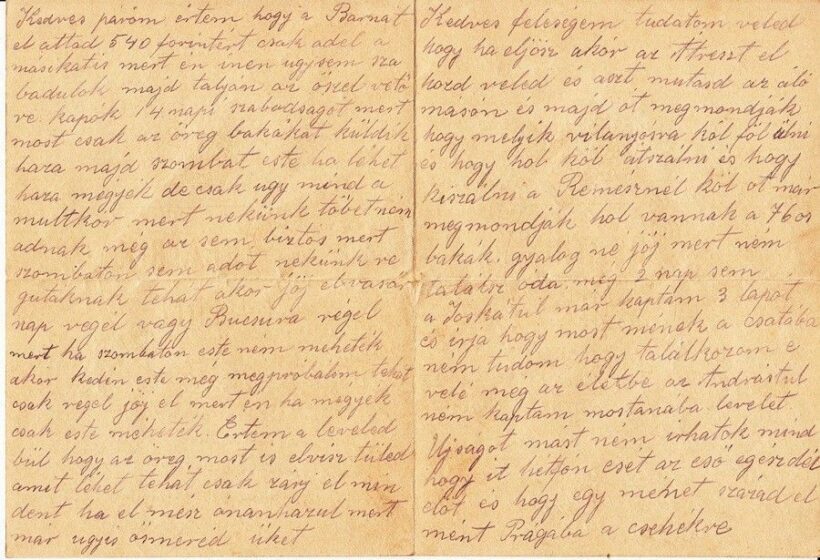 Kedves párom értem hogy a Barnát
el attad 540 forintért csak adel a
másikatis mert én inen ugysem sza
badulok majd talján az öszel vető
re kapók 14 napi szabadságot mert
most csak az öreg bakákat küldik
haza majd szombat este ha léhet
haza mégyék de csak ugy mind a
multkór mert nekünk töbet ném
adnak meg az sem biztós mert
szombatón sem adót nekünk ve
gutaknak tehát akór jöj el vasár
nap végél vagy Bucsura végél
mert ha szombatón este nem mehéték
akór kedin este még megpróbalóm tehát
csak regel jöj el mert én ha mégyék
csak este méhetek. Értem a leveled
bül hogy az öreg most is elvisz tüled
amit léhet tehát csak zárj el min
dent ha el mész ónanhazul mert
már ugyis ösmeréd üket
Kedves feleségem tudatom veled
hogy ha eljösz akór az Atreszt el
hozd veled és aszt mutasd az áló
másón és majd ót megmondják
hogy melyik vilanyósra kól föl ülni
és hogy hol köl átszálni és hogy
kiszálni a Remésznél köl ót már
megmondják hol vannak a 76 os
bakák. gyalog ne jöj mert ném
találsz óda még 2 nap sem
a Joskátul már kaptam 3 lapót
és irja hogy most menek a csatába
ném tudom hogy találkozom e
velé meg az életbe az Andrástul
nem kaptam mostanába levelét
Ujságót mást ném irhatok mind
hogy it hétfőn esét az eső egesz dél
előt és hogy egy ménet század el
mént Prágába a csehékre